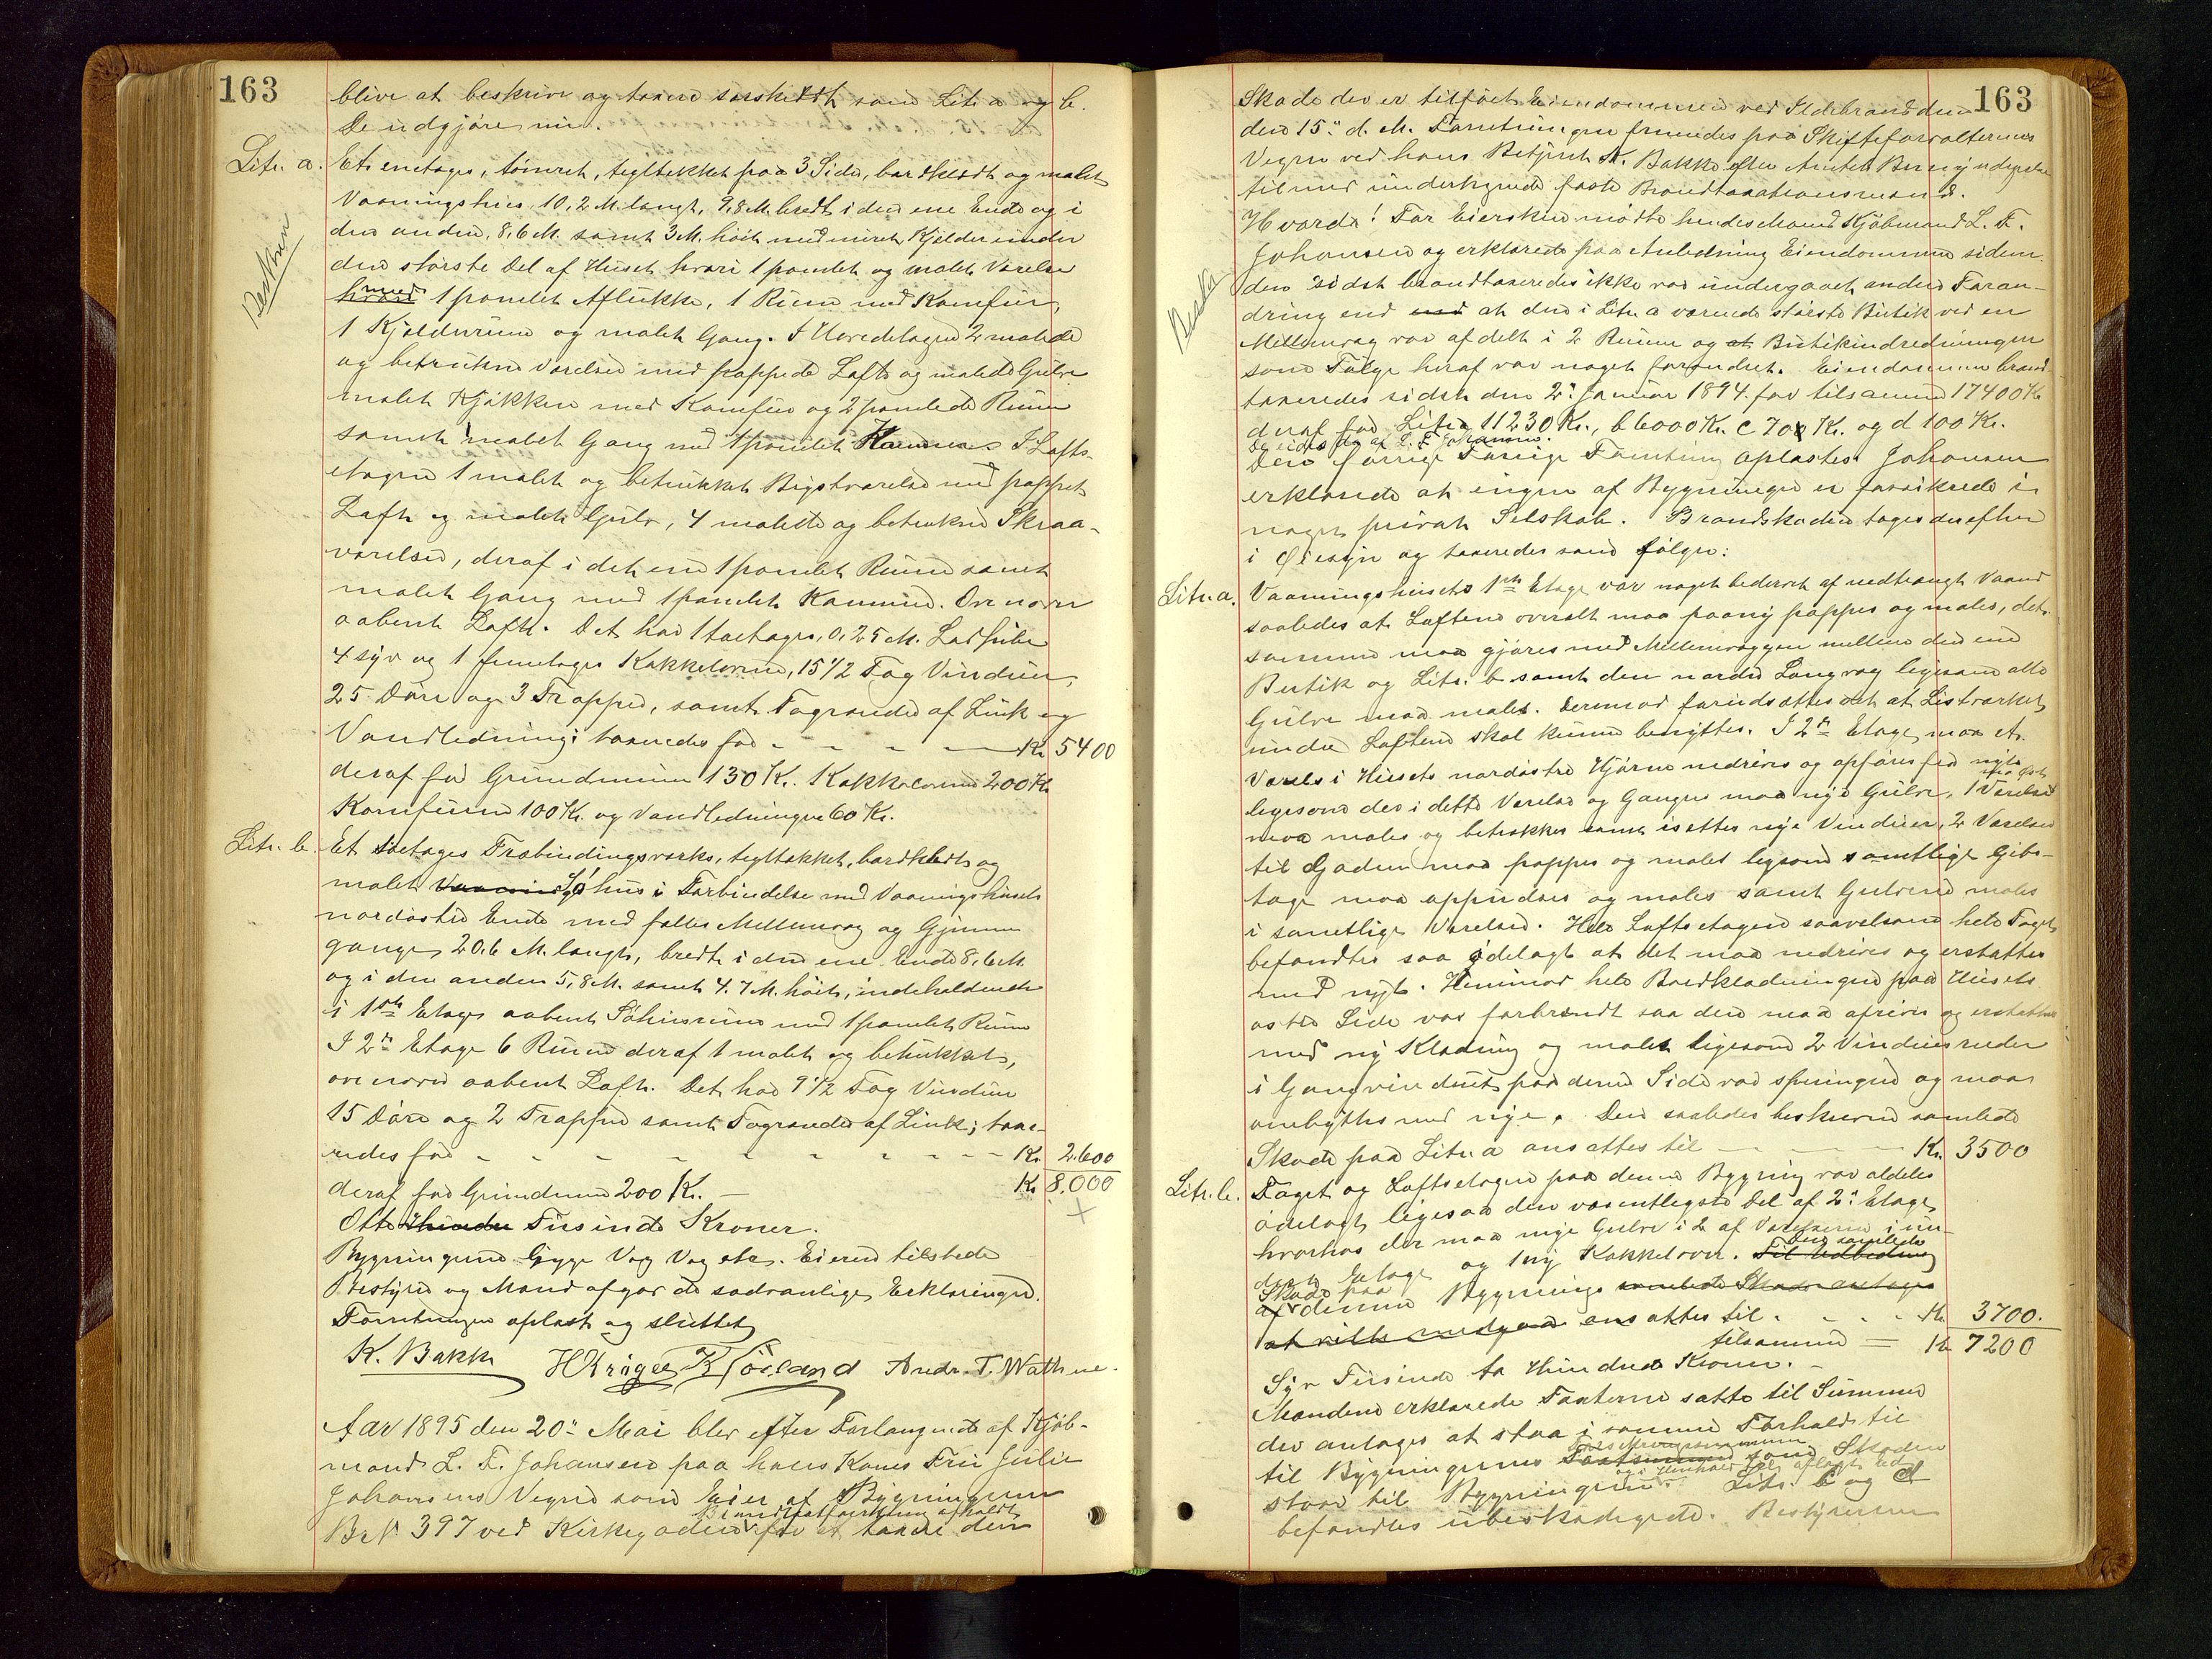 163
blive at beskrive og taxere særskildt som Litr. a og b.
De udgjøre nu.
Litr. a. Et enetages, tømret, tegltækket paa 3 Sider, bordklædt og malet
Vaaningshus 10,2 M. langt, 9,8 M. bredt i den ene Ende og i
den anden, 8,6 M. samt 3 M. høit med muret Kjelder under
den største Del af Huset hvori 1 panelet og malet Værelse
med 1 panelet Aflukke, 1 Rum med Komfur,
1 Kjelderrum og malet Gang. I Hovedetagen 2 malede
og betrukne Værelser med pappede Lofte og malede Gulve
malet Kjøkken med Komfur og 2 panelede Rum
samt malet Gang med 1 panelet Kammer. I Lofts-
etagen 1 malet og betrukket Kvistværelse med pappet
Loft og malet Gulv, 4 malede og betrukne Skraa-
værelser, deraf i det ene 1 panelet Rum samt
malet Gang med 1 panelet Kammer. Ovenover
aabent Loft. Det har 1 toetages, 0,25 M. Ladpibe
4 syv og 1 femetages Kakkelovne, 15 1/2 Fag Vinduer,
25 Døre og 3 Trapper, samt Tagrender af Zink og
Vandledning; taxeredes for - - - - Kr. 5400
deraf for Grundmuren 130 Kr. Kakkelovne 200 Kr.
Komfurene 100 Kr. og Vandledningen 60 Kr.
Litr. b. Et toetages Træbindingsværks, tegltækket, bordklædt og
malet Søhus i Forbindelse med Vaaningshusets
nordøstre Ende med fælles Mellemvæg og Gjennem
gange, 20,6 M. langt, bredt i den ene Ende 8,6 M.
og i den anden 5,8 M. samt 4.7 M. høit, indeholdende
i 1ste Etage aabent Søhusrum med 1 panelet Rum
I 2n Etage 6 Rum deraf 1 malet og betrukket,
ovenover aabent Loft. Det har 9 1/2 Fag Vinduer
15 Døre og 2 Trapper samt Tagrender af Zink; taxe-
redes for - - - - - - - - Kr. 2.600
deraf for Grundmur 200 Kr. — Kr. 8,000
Otte Tusinde Kroner.
Bygningerne ligge Væg Væg etc. Eieren tilstede
Bestyrer og Mænd afgav de sædvanlige Erklæringer.
Forretningen oplæst og sluttet
K. Bakke HKrøger Andr. T. Wathne.
Aar 1895 den 20n Mai blev efter Forlangende af Kjøb-
mand L. F. Johansen paa hans Kones Fru Julie
Johansens Vegne som Eier af Bygningerne
Brandskadeforretning afholdt
Br.N 397 ved Kirkegaden for at taxere den
163
Skade der er tilføiet Eiendommen ved Ildebrand den
den 15n d. M. Forretningen fremmedes paa Skifteforvalterens
Vegne ved hans Betjent K. Bakke efter Amtets Bemyndigelse
tilmed underhavende faste Brandtaxationsmænd.
Hvorda! For Eiersken mødte hendes Mand Kjøbmand L. F.
Johansen og erklærede paa Anledning Eiendommen siden
den sidst brandtaxeredes ikke var undergaaet anden Foran-
dring end at den i Litr. a værende største Butik ved en
Mellemvæg var afdelt i 2 Rum og Butikindredningen
som Følge heraf var noget forandret. Eiendommen brand-
taxeredes sidst den 2n Januar 1894 for tilsammen 17400 Kr.
deraf for Litr. a 11230 Kr., b 6000 Kr. c 70 Kr. og d 100 Kr.
og eides da af L. F. Johansen.
Den forrige Forretning oplæstes. Johansen
erklærede at ingen af Bygningerne er forsikrede i
noget privat Selskab. Brandskaden toges derefter
i Øiesyn og taxeredes som følger:
Litr. a. Vaaningshusets 1ste Etage var noget bedærvet af nedtrængt Vand
saaledes at Loftene overalt maa paany pappes og males, det
samme maa gjøres med Mellemvæggen mellem den ene
Butik og Litr. b samt den nordre Langvæg ligesom alle
Gulve maa males. Derimod forudsættes det at Listværket
under Loftene skal kunne benyttes. I 2n Etage maa et
Værelse i Husets nordøstre Hjørne nedrives og opføres fra nyt
ligesom der i dette Værelse og Gangen maa nye Gulve, 1 Værelse
maa males og betrækkes samt isættes nye Vinduer, 2 Værelser
til Gaden maa pappes og males ligesom samtlige Gibs-
tage maa oppudses og males samt Gulvene males
i samtlige Værelser. Hele Loftsetagen saavelsom hele Taget
befandtes saa ødelagt at det maa nedrives og erstattes
med nyt. Henimod hele Bordklædningen paa Husets
østre Side var forbrændt saa den maa afrives og erstattes
med ny Klædning og males ligesom 2 Vinduesruder
i Gangvinduet paa denne Side var sprungne og maa
ombyttes med nye. Den saaledes beskrevne samlede
Skade paa Litr. a ansættes til - - - Kr. 3500
Litr. b. Taget og Loftsetagen paa denne Bygning var aldeles
ødelagt ligesaa den væsentligste Del af 2n Etage,
hvorhos der maa nye Gulve i 2 af Værelserne i
Etage og 1 ny Kakkelovn. Den samlede
Skade paa
denne Bygning ansættes til - - - Kr. 3700.
tilsammen = Kr. 7200
Syv Tusinde to Hundrede Kroner. -
Mændene erklærede Taxterne satte til Summer
der antages at staa i samme Forhold til
til Bygningernes som Skaden
staar til Bygningerne. Litr. c og d
befandtes ubeskadigede. Bestyreren